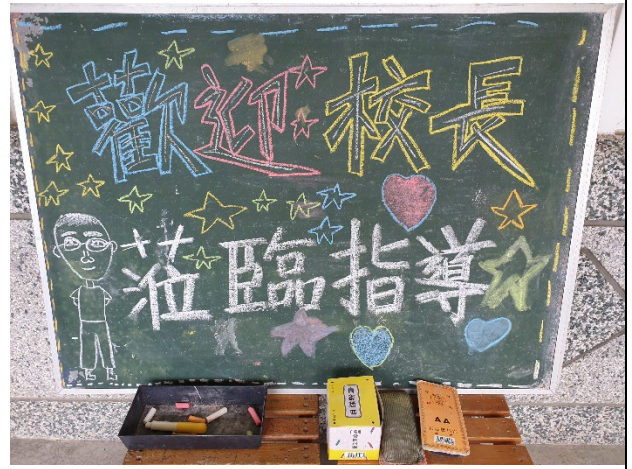 歡迎校長
蒞臨指導